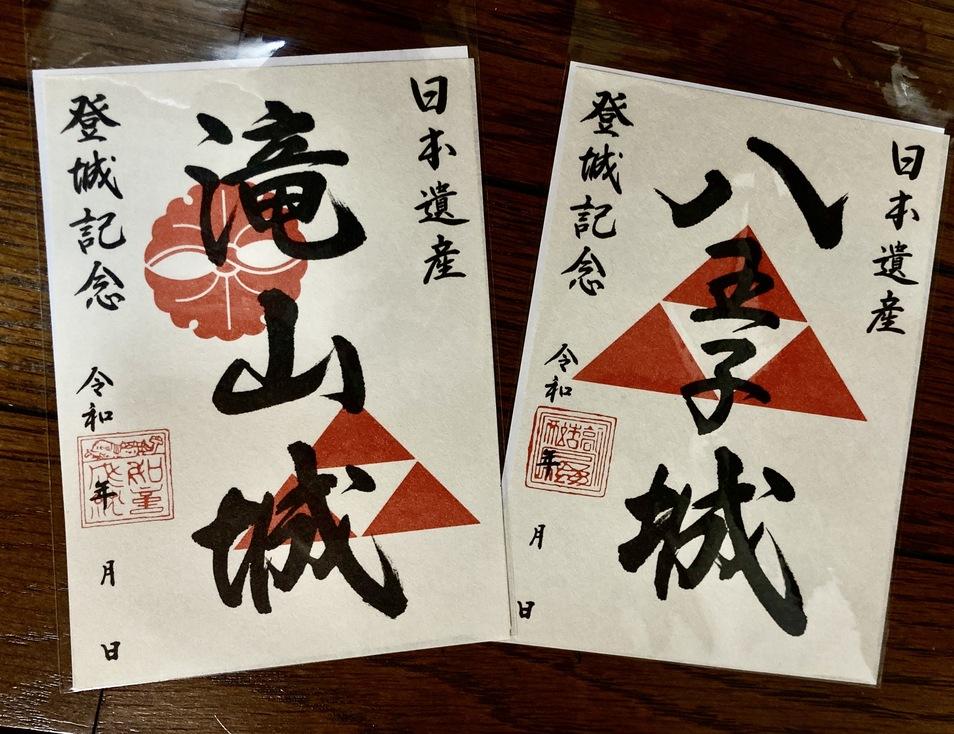 日本遺産
滝山城
登城記念
令和
年
月
日
日本遺産
八王子城
登城記念
令和
年
月
日